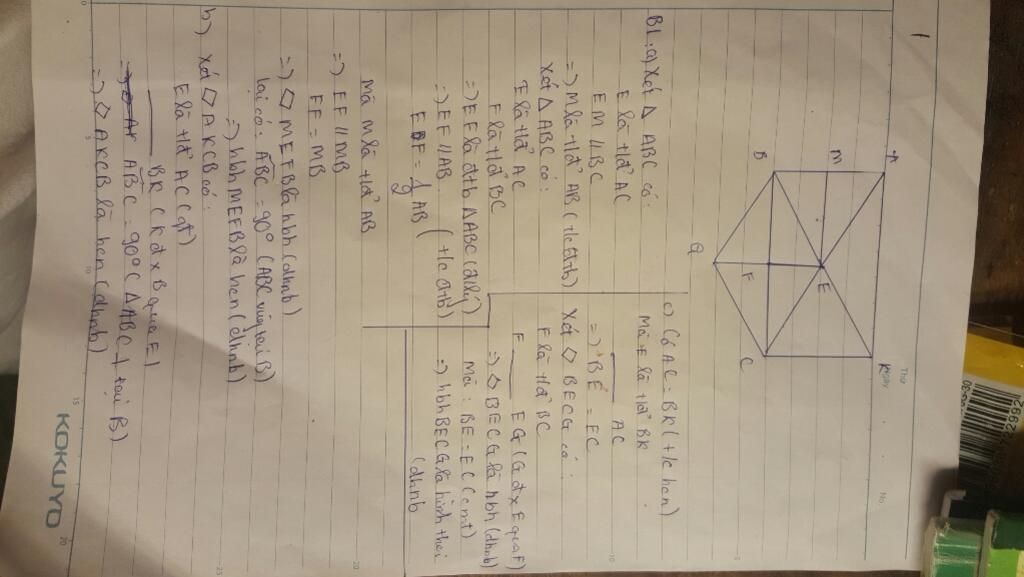 1
Thứ
Ngày
No.
A
K
M
E
B
F
C
G
B1: a) Xét Δ ABC có:
E là tđ' AC
EM // BC
=> M là tđ' AB (t/c đtb)
Xét Δ ABC có:
E là tđ' AC
F là tđ' BC
=> EF là đtb ΔABC (đ/lý)
=> EF // AB
EF = 1/2 AB (t/c đtb)
Mà M là tđ' AB
=> EF // MB
EF = MB
=> ◇ MEFB là hbh (dhnb)
lại có: ABC = 90° (ABC vuông tại B)
=> hbh MEFB là hcn (dhnb)
b) Xét ◇ AKCB có:
E là tđ' AC (gt)
BK (K đx B qua E)
ABC = 90° (ΔABC ⊥ tại B)
=> ◇ AKCB là hcn (dhnb)
c) Có AC = BK (t/c hcn)
Mà E là tđ' BK
AC
=> BE = EC
Xét ◇ BECG có:
F là tđ' BC
F EG (G đx E qua F)
=> ◇ BECG là hbh (dhnb)
Mà: BE = EC (cmt)
=> hbh BECG là hình thoi
(dhnb
KOKUYO